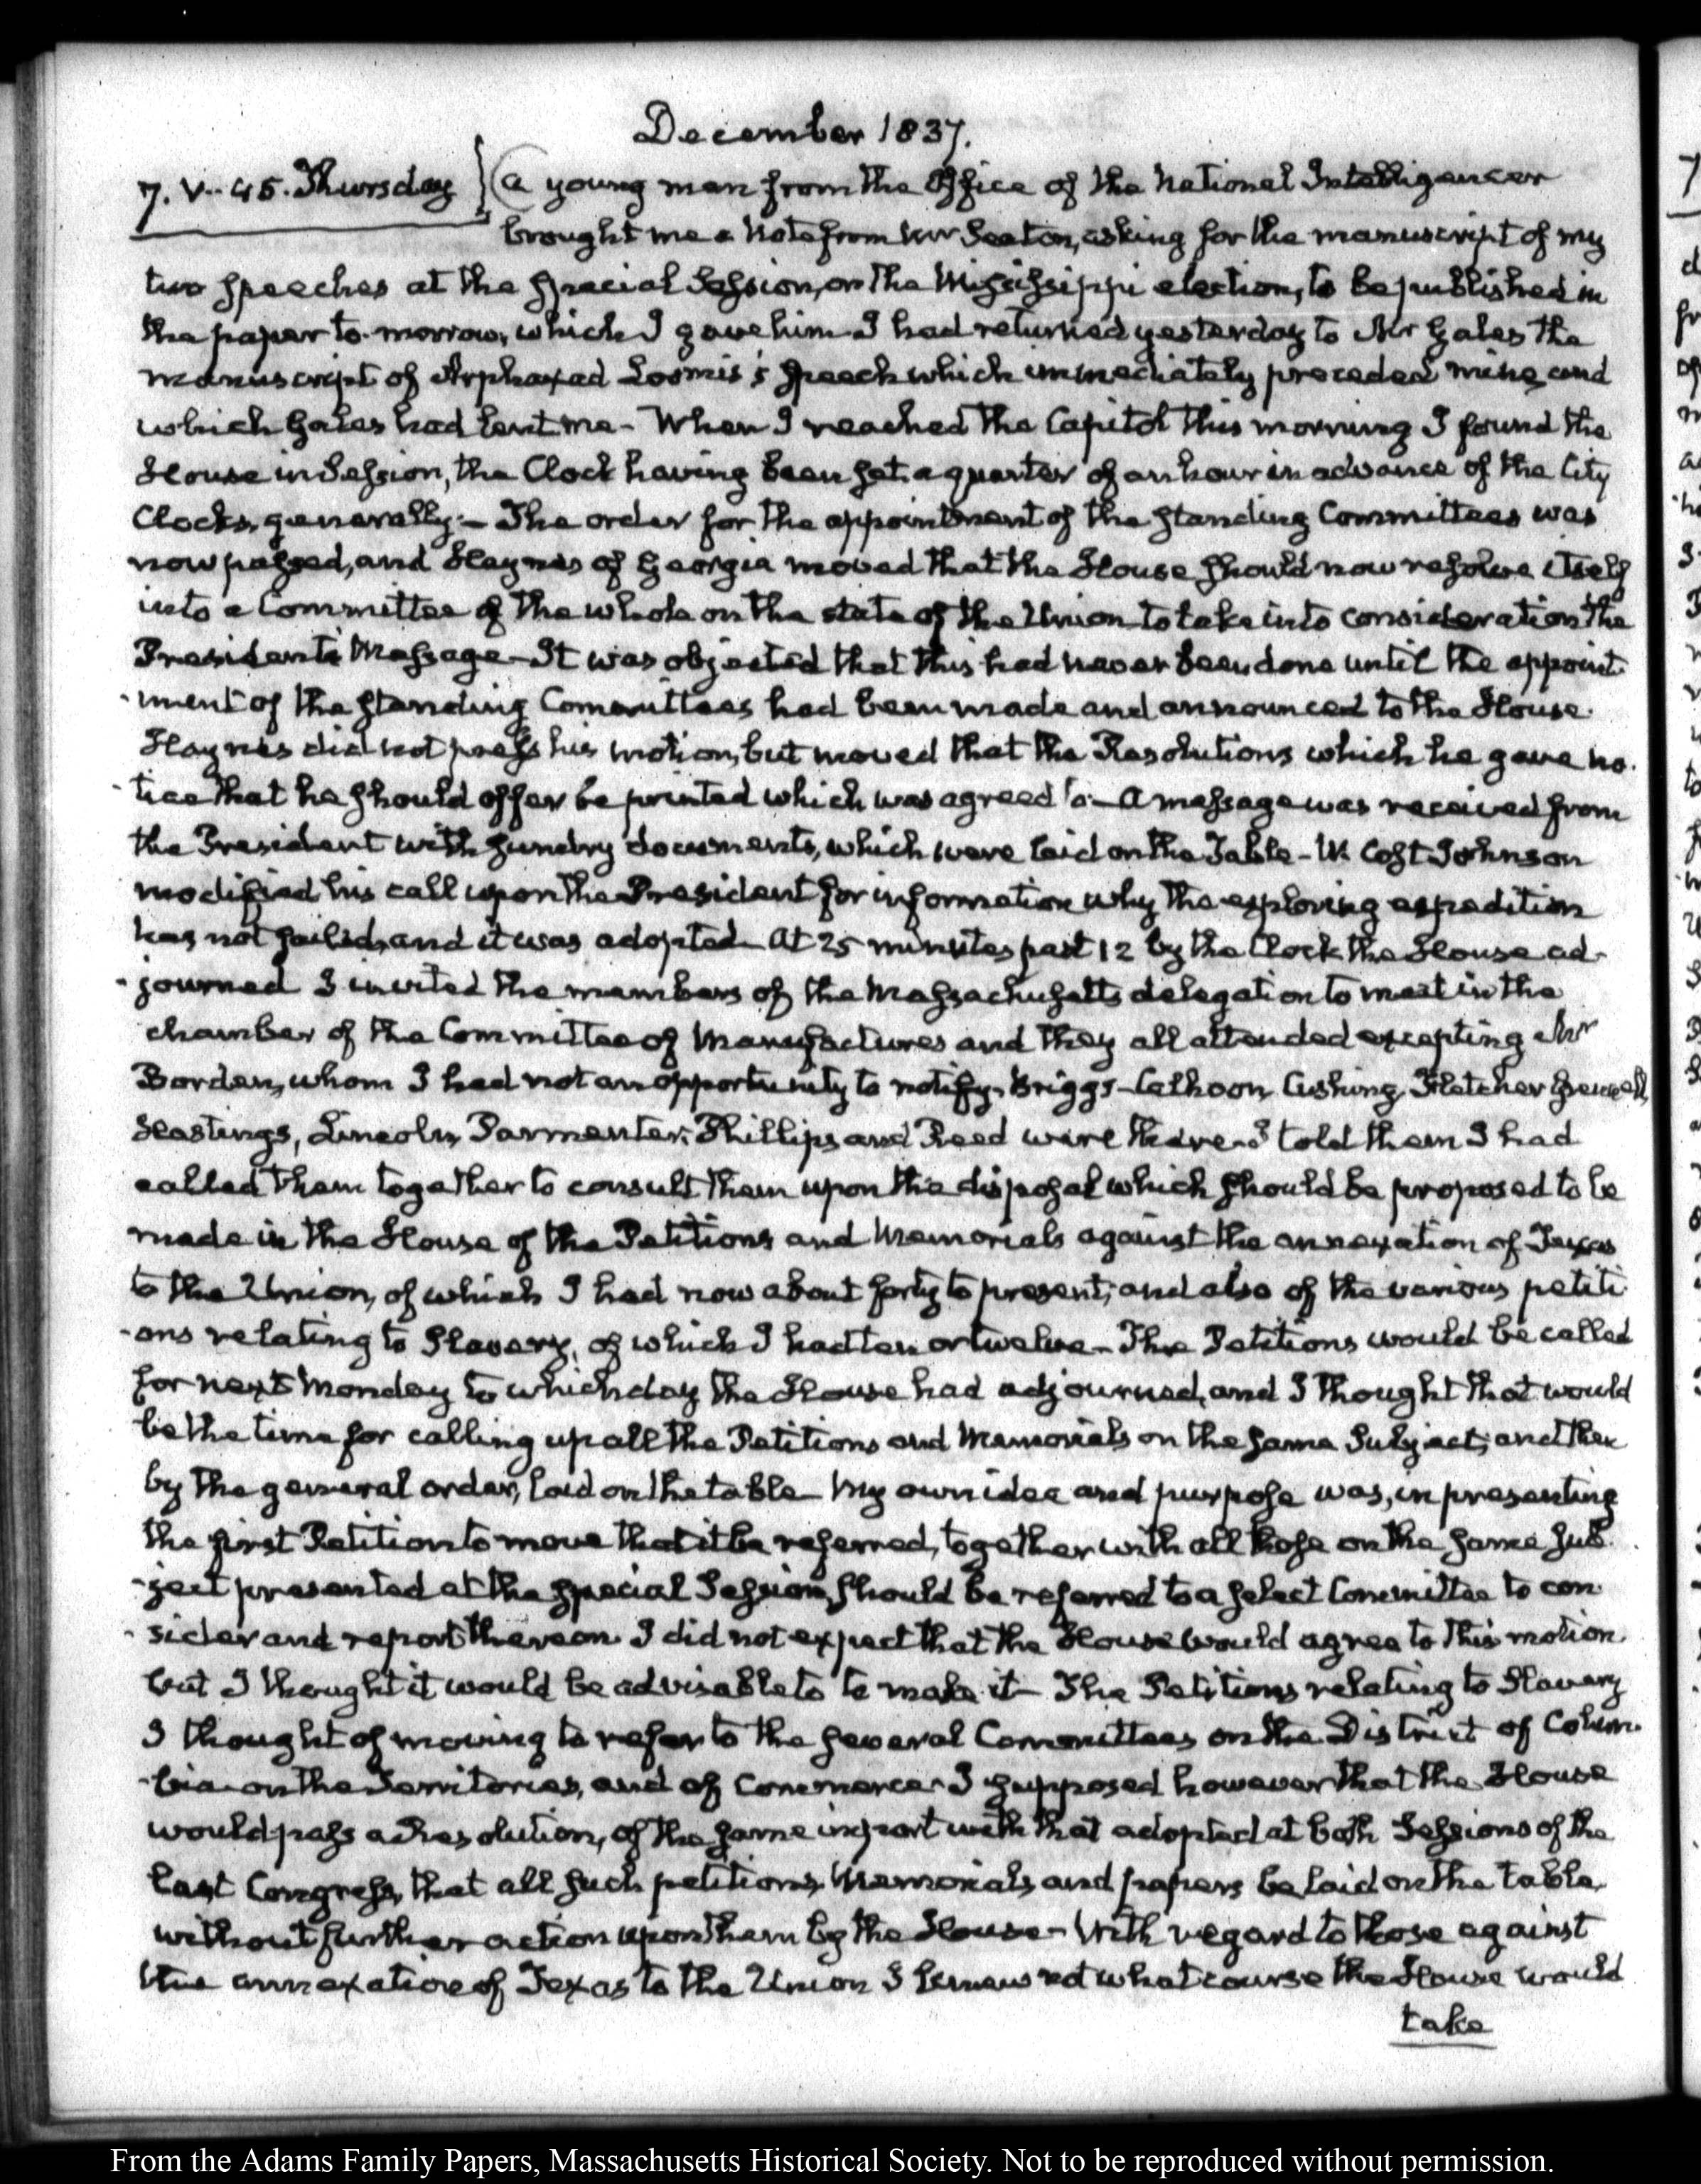 December 1837.
7. V. 45. Thursday } A young man from the Office of the National Intelligencer
brought me a Note from Mr Seaton, asking for the manuscript of my
two speeches at the special Session, on the Mississippi election, to be published in
the paper to-morrow, which I gave him I had returned yesterday to Mr Gales the
manuscript of Arphaxad Loomis's speech which immediately preceded mine and
which Gales had lent me - When I reached the Capitol this morning I found the
House in Session, the Clock having been set a quarter of an hour in advance of the City
Clocks, generally - The order for the appointment of the standing Committees was
now passed, and Haynes of Georgia moved that the House should now resolve itself
into a Committee of the whole on the state of the Union to take into consideration the
President's Message - It was objected that this had never been done until the appoint-
-ment of the standing Committees had been made and announced to the House.
Haynes did not press his motion, but moved that the Resolutions which he gave no-
-tice that he should offer be printed which was agreed to - A message was received from
the President with sundry documents, which were laid on the Table - W. Cost Johnson
modified his call upon the President for information why the exploring expedition
has not sailed, and it was adopted - At 25 minutes past 12 by the Clock the House ad-
-journed I invited the members of the Massachusetts delegation to meet in the
chamber of the Committee of Manufactures and they all attended excepting Mr
Borden, whom I had not an opportunity to notify. Briggs - Calhoon, Cushing, Fletcher Grennell,
Hastings, Lincoln, Parmenter, Phillips and Reed were there - I told them I had
called them together to consult them upon the disposal which should be proposed to be
made in the House of the Petitions and Memorials against the annexation of Texas
to the Union, of which I had now about forty to present; and also of the various petiti-
-ons relating to Slavery, of which I had ten or twelve - The Petitions would be called
for next Monday to which day the House had adjourned, and I thought that would
be the time for calling up all the Petitions and Memorials on the same Subject; and then
by the general order, laid on the table - My own idea and purpose was, in presenting
the first Petition to move that it be referred, together with all those on the same sub-
-ject presented at the special Session, should be referred to a select Committee to con-
-sider and report thereon I did not expect that the House would agree to this motion
but I thought it would be advisable to to make it - The Petitions relating to Slavery
I thought of moving to refer to the several Committees on the District of Colum-
-bia - on the Territories, and of Commerce - I supposed however that the House
would pass a Resolution, of the same import with that adopted at both Sessions of the
last Congress, that all such petitions, Memorials and papers be laid on the table,
without further action upon them by the House - With regard to those against
the annexation of Texas to the Union I knew not what course the House would
take
From the Adams Family Papers, Massachusetts Historical Society. Not to be reproduced without permission.